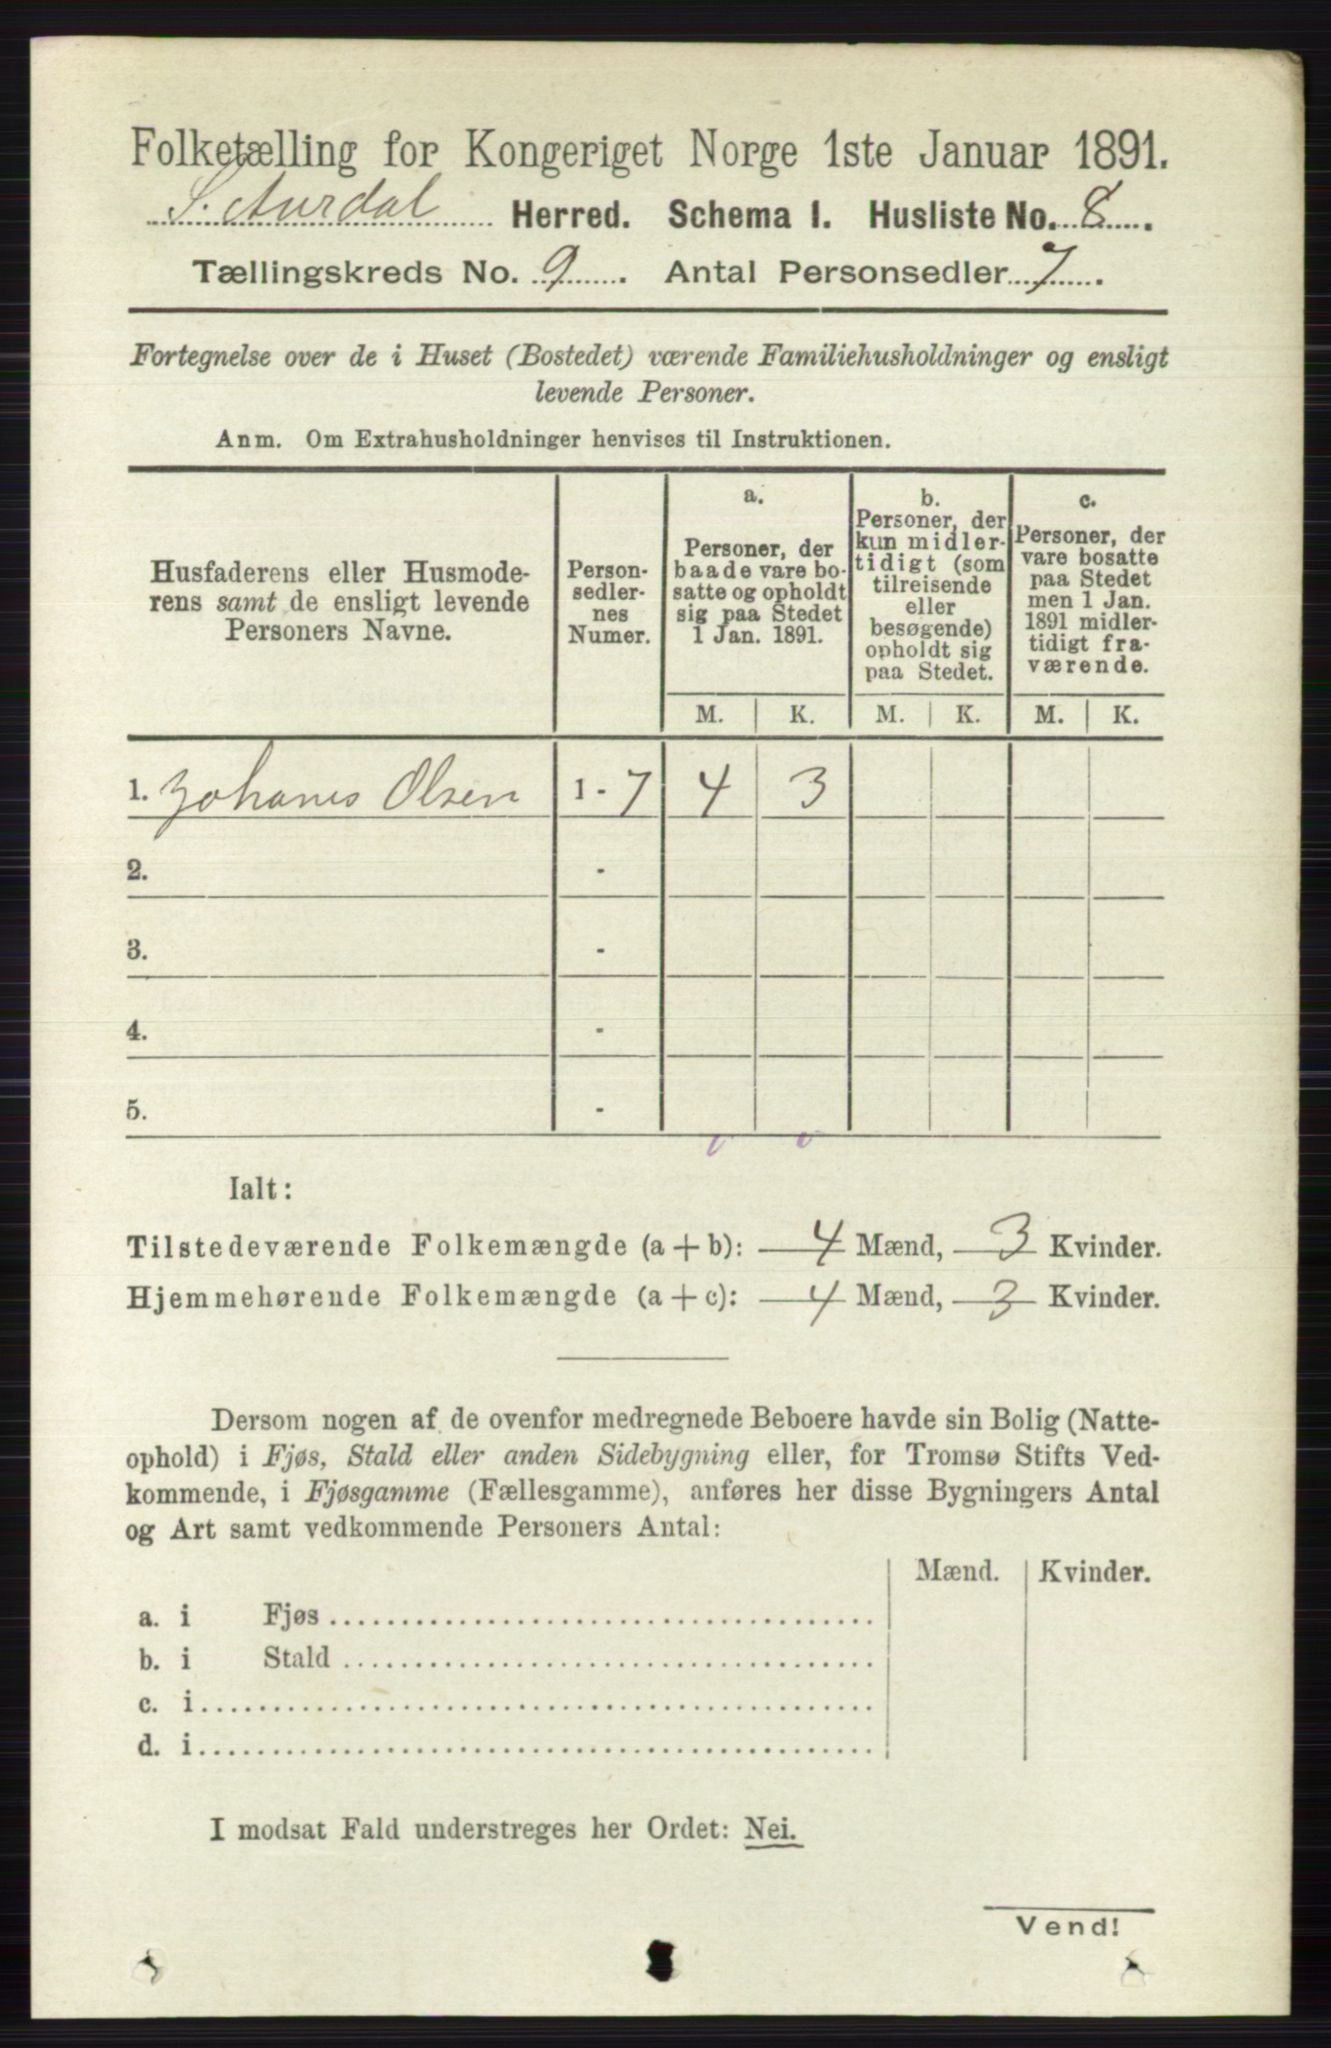 Folketælling for Kongeriget Norge 1ste Januar 1891.
S. Aurdal Herred. Schema I. Husliste No. 8.
Tællingskreds No. 9. Antal Personsedler 7.
Fortegnelse over de i Huset (Bostedet) værende Familiehusholdninger og ensligt
levende Personer.
Anm. Om Extrahusholdninger henvises til Instruktionen.
Husfaderens eller Husmode-
rens samt de ensligt levende
Personers Navne.
Person-
sedler-
nes
Numer.
a.
Personer, der
baade vare bo-
satte og opholdt
sig paa Stedet
1 Jan. 1891.
b.
Personer, der
kun midler-
tidigt (som
tilreisende
eller
besøgende)
opholdt sig
paa Stedet.
c.
Personer, der
vare bosatte
paa Stedet
men 1 Jan.
1891 midler-
tidigt fra-
værende.
M. K. M. K. M. K.
1. Johanes Olsen 1 - 7 4 3
2. -
3. -
4. -
5. -
Ialt:
Tilstedeværende Folkemængde (a + b): 4 Mænd, 3 Kvinder.
Hjemmehørende Folkemængde (a + c): 4 Mænd, 3 Kvinder.
Dersom nogen af de ovenfor medregnede Beboere havde sin Bolig (Natte-
ophold) i Fjøs, Stald eller anden Sidebygning eller, for Tromsø Stifts Ved-
kommende, i Fjøsgamme (Fællesgamme), anføres her disse Bygningers Antal
og Art samt vedkommende Personers Antal:
Mænd. Kvinder.
a. i Fjøs
b. i Stald
c. i
d. i
I modsat Fald understreges her Ordet: Nei.
Vend!